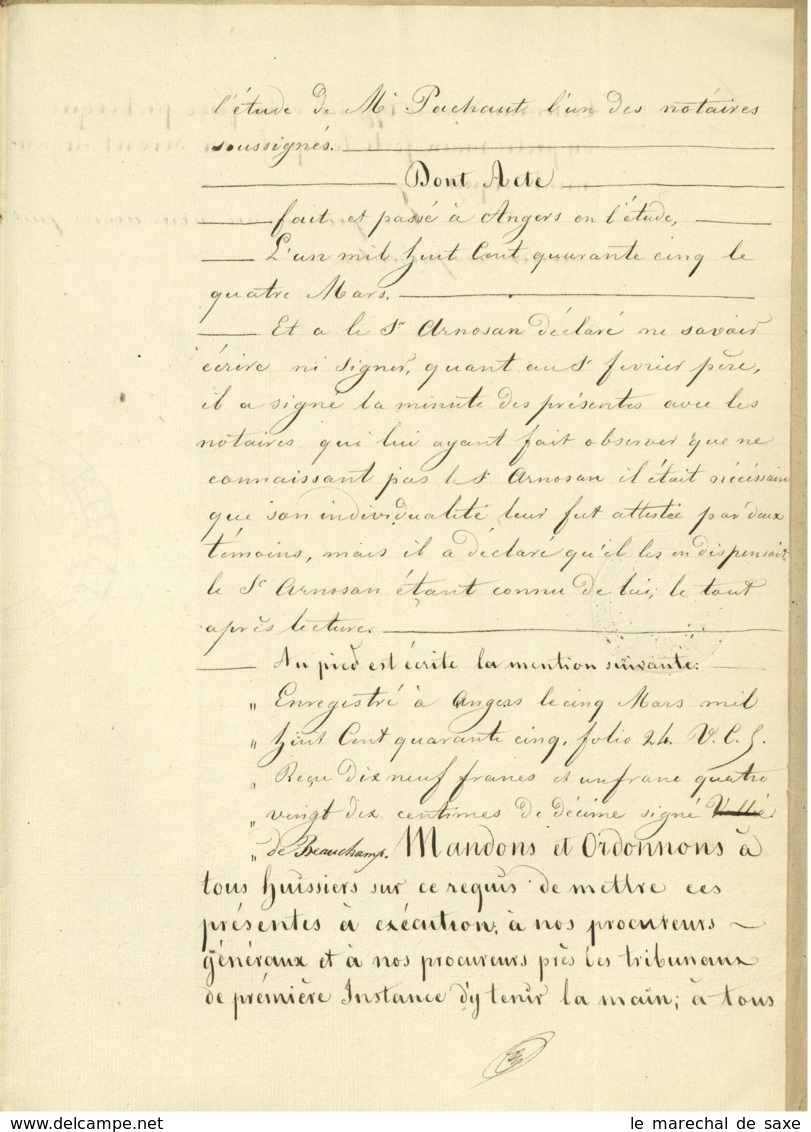 l'étude de Me Pachaut l'un des notaires
soussignés.
Dont Acte
fait et passé à Angers en l'étude,
L'an mil huit Cent quarante cinq le
quatre Mars.
Et a le Sr Arnosan déclaré ne savoir
écrire ni signer, quant au Sr fevrier père,
il a signé la minute des présentes avec les
notaires qui lui ayant fait observer que ne
connaissant pas le Sr Arnosan il était nécéssaire
que son individualité leur fut attestée par deux
témoins, mais il a déclaré qu'il les en dispensait,
le Sr Arnosan étant connu de lui, le tout
après lecture.
Au pied est écrite la mention suivante:
" Enregistré à Angers le cinq Mars mil
" huit Cent quarante cinq, folio 24. V. C. 5.
" Reçu Dix neuf francs et un franc quatre
" vingt dix centimes de décime signé Vallié
" de Beauchamp. Mandons et Ordonnons à
tous huissiers sur ce requis de mettre ces
présentes à exécution, à nos procureurs ~
généraux et à nos procureurs près les tribunaux
de prémière Instance d'y tenir la main; à tous
le marechal de saxe